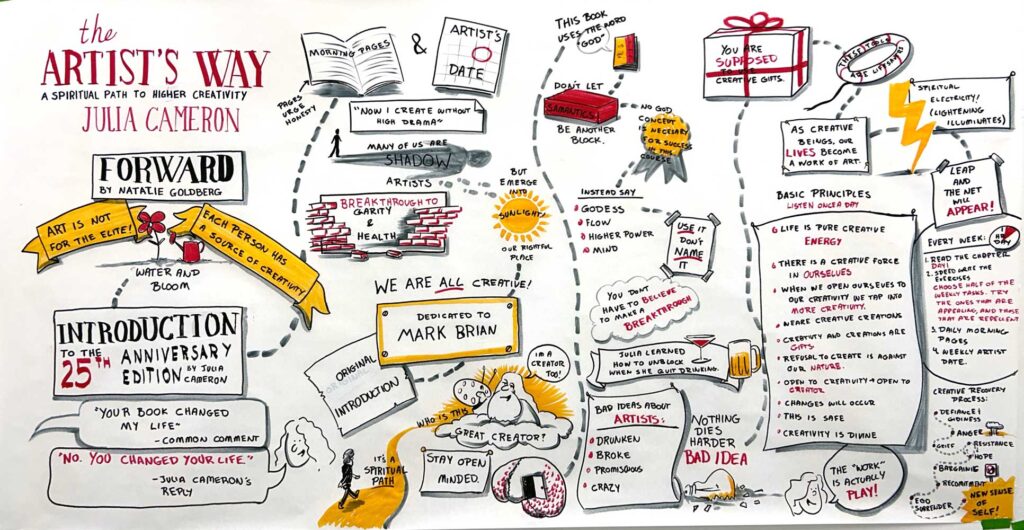 the
ARTIST'S WAY
A SPIRITUAL PATH TO HIGHER CREATIVITY
JULIA CAMERON
FORWARD
BY NATALIE GOLDBERG
ART IS NOT
FOR THE ELITE!
EACH PERSON HAS
A SOURCE OF CREATIVITY
WATER AND
BLOOM
INTRODUCTION
TO THE
25TH ANNIVERSARY
EDITION BY JULIA
CAMERON
"YOUR BOOK CHANGED
MY LIFE"
-COMMON COMMENT
"NO. YOU CHANGED YOUR LIFE."
-JULIA CAMERON'S
REPLY
MORNING PAGES
&
ARTIST'S
DATE
PAGES
URGE
HONESTY
"NOW I CREATE WITHOUT
HIGH DRAMA"
MANY OF US ARE
SHADOW
ARTISTS
BREAKTHROUGH TO
CARITY
&
HEALTH
BUT
EMERGE
INTO
SUNLIGHT!
OUR RIGHTFUL
PLACE
WE ARE ALL CREATIVE!
DEDICATED TO
MARK BRIAN
ORIGINAL
INTRODUCTION
I'M A
CREATOR
TOO!
WHO IS THIS
GREAT CREATOR?
IT'S A
SPIRITUAL
PATH
STAY OPEN
MINDED.
THIS BOOK
USES THE WORD
"GOD"
DON'T LET
SAMANTICS
BE ANOTHER
BLOCK.
NO GOD
CONCEPT
IS NECESSARY
FOR SUCCESS
IN THIS
COURSE
INSTEAD SAY
GODESS
FLOW
HIGHER POWER
MIND
USE IT
DON'T
NAME
IT
YOU DON'T
HAVE TO BELIEVE
TO MAKE A
BREAKTHROUGH
JULIA LEARNED
HOW TO UNBLOCK
WHEN SHE QUIT DRINKING.
BAD IDEAS ABOUT
ARTISTS:
DRUNKEN
BROKE
PROMISCUOUS
CRAZY
NOTHING
DIES
HARDER
BAD IDEA
YOU ARE
SUPPOSED
TO USE
CREATIVE GIFTS.
THESE TOOLS
ARE LIFESAVERS
AS CREATIVE
BEINGS, OUR
LIVES BECOME
A WORK OF ART.
SPIRITUAL
ELECTRICITY!
(LIGHTENING
ILLUMINATES)
LEAP
AND
THE NET
WILL
APPEAR!
BASIC PRINCIPLES
LISTEN ONCE A DAY
LIFE IS PURE CREATIVE
ENERGY
THERE IS A CREATIVE FORCE
IN OURSELUES
WHEN WE OPEN OURSEUES TO
OUR CREATIVITY WE TAP INTO
MORE CREATIVITY.
WEARE CREATIVE CREATIONS
CREATIVITY AND CREATIONS ARE
GIFTS
REFUSAL TO CREATE IS AGAINST
OUR NATURE.
OPEN TO CREATIVITY → OPEN TO
CREATOR
CHANGES WILL OCCUR
THIS IS SAFE
CREATIVITY IS DIVINE
THE "WORK"
IS ACTUALLY
PLAY!
EVERY WEEK:
1 HR
DAY
1. READ THE CHAPTER
DAY1
2. SPEED WRITE THE
EXERCISES
CHOOSE HALF OF THE
WEEKLY TASKS. TRY
THE ONES THAT ARE
APPEALING, AND THOSE
THAT ARE REPELLENT
3. DAILY MORNING
PAGES
4. WEEKLY ARTIST
DATE.
CREATIVE RECOVERY
PROCESS:
DEFIANCE &
GIDINESS
ANGER
GRIEF
RESISTANCE
HOPE
BARGAINING
RECOMITMENT
EGO
SURRENDER
NEW SENSE
OF
SELF!